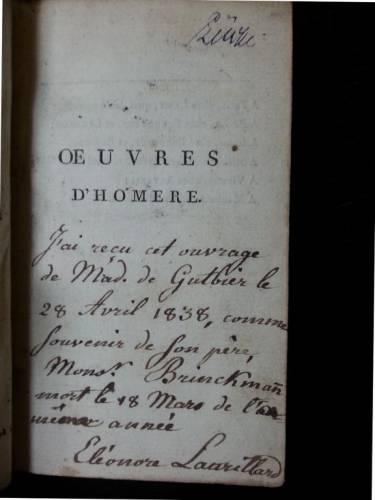 OEUVRES
D'HOMERE.
J'ai reçu cet ouvrage
de Mad. de Gutbier le
28 Avril 1838, comme
souvenir de son père,
Monsr. Brinckmañ
mort le 18 Mars de l'
même année
Eléonore Laurillard